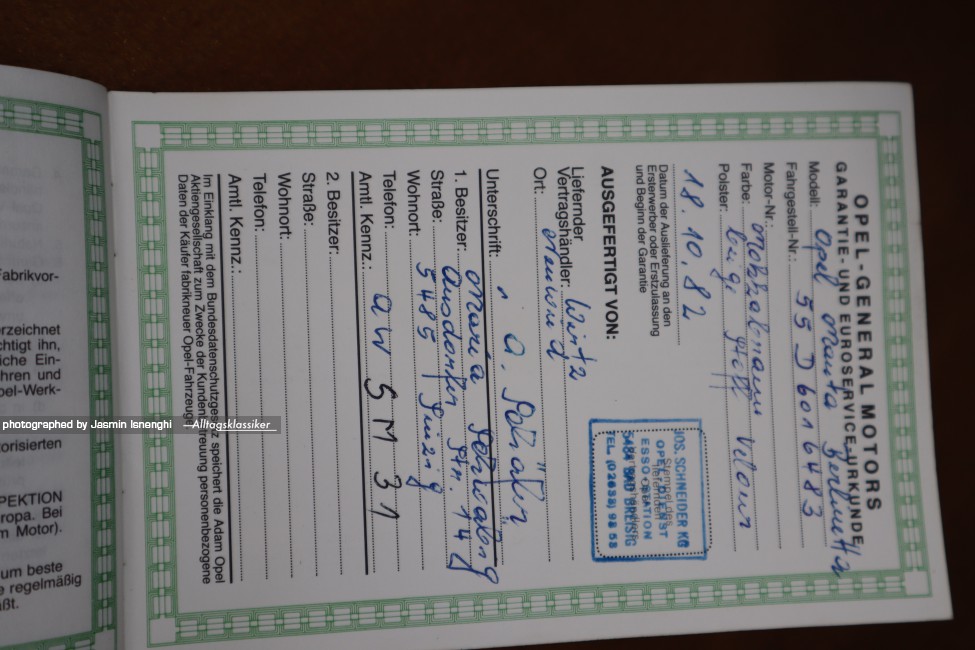 OPEL-GENERAL MOTORS
GARANTIE- UND EUROSERVICE-URKUNDE
Modell: Opel Manta Berlinetta
Fahrgestell-Nr.: 55 D6016483
Motor-Nr.:
Farbe: Mokkabraun
Polster: beige Velour
18.10.82
Datum der Auslieferung an den
Ersterwerber oder Erstzulassung
und Beginn der Garantie
JOS. SCHNEIDER KG
OPEL-DIENST
ESSO-STATION
5484 BAD BREISIG
TEL. (02633) 98 58
AUSGEFERTIGT VON:
Liefernder
Vertragshändler: Wirtz
Ort: Neuwied
Unterschrift:
1. Besitzer: Maria
Straße: Str. 14
Wohnort: 5485 Sinzig
Telefon:
Amtl. Kennz.: AW SM 31
2. Besitzer:
Straße:
Wohnort:
Telefon:
Amtl. Kennz.:
Im Einklang mit dem Bundesdatenschutzgesetz speichert die Adam Opel
Aktiengesellschaft zum Zwecke der Kundenbetreuung personenbezogene
Daten der Käufer fabrikneuer Opel-Fahrzeuge.
abrikvor-
erzeichnet
chtigt ihn,
iche Ein-
hren und
pel-Werk-
torisierten
PEKTION
ropa. Bei
m Motor).
um beste
e regelmäßig
ißt.
photographed by Jasmin Isnenghi
Alltagsklassiker